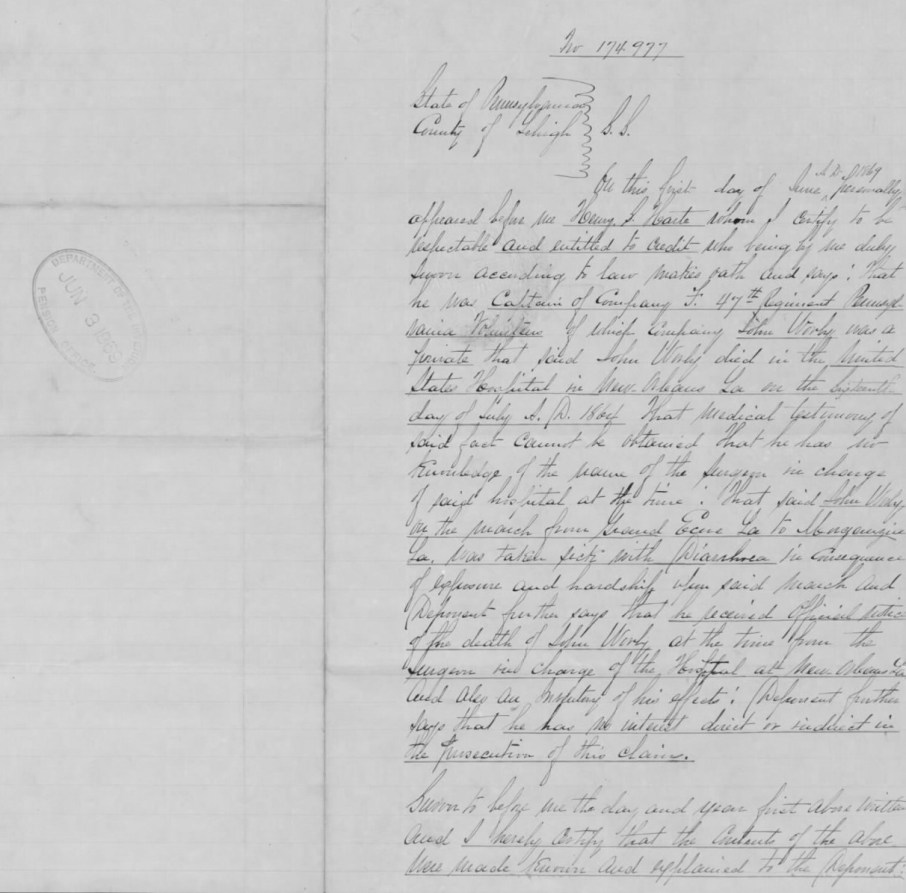 No 174.977
State of Pennsylvania
County of Lehigh S.S.
On this first day of June A.D. 1869 personally
appeared before me Henry S. Harte whom I certify to be
respectable and entitled to credit who being by me duly
sworn according to law makes oath and says: That
he was Captain of Company F. 47th Regiment Pennsyl
vania Volunteers of which Company John Worly was a
private that said John Worly died in the United
States Hospital in New Orleans La on the sixteenth
day of July A. D. 1864 That medical testimony of
said fact cannot be obtained That he has no
knowledge of the name of the surgeon in charge
of said hospital at the time: That said John Worly
on the march from Grand Ecore La to Morganzia
La, was taken sick with Diarrhoea in consequence
of exposure and hardship upon said march and
Deponent further says that he received official notice
of the death of John Worly at the time from the
surgeon in charge of the Hospital at New Orleans La
and also an Inventory of his effects: Deponent further
says that he has no interest direct or indirect in
the prosecution of this claim.
Sworn to before me the day and year first above written
and I hereby certify that the contents of the above
were made known and explained to the Deponent
DEPARTMENT OF THE INTERIOR
JUN 3 1869
PENSION OFFICE